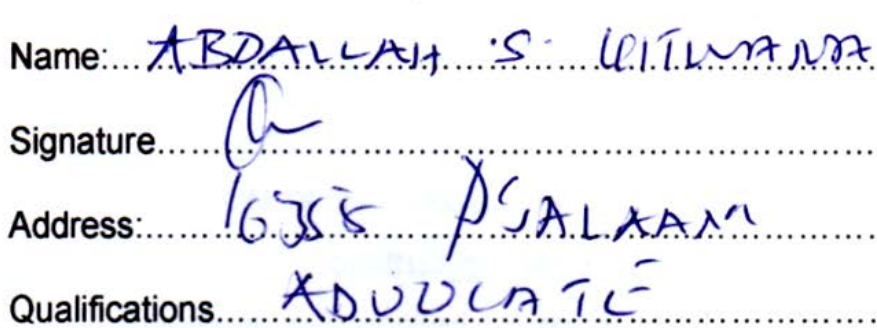 Name: ABDALLAH S. KITWANA
Signature
Address: 16355 D'SALAAM
Qualifications ADVOCATE